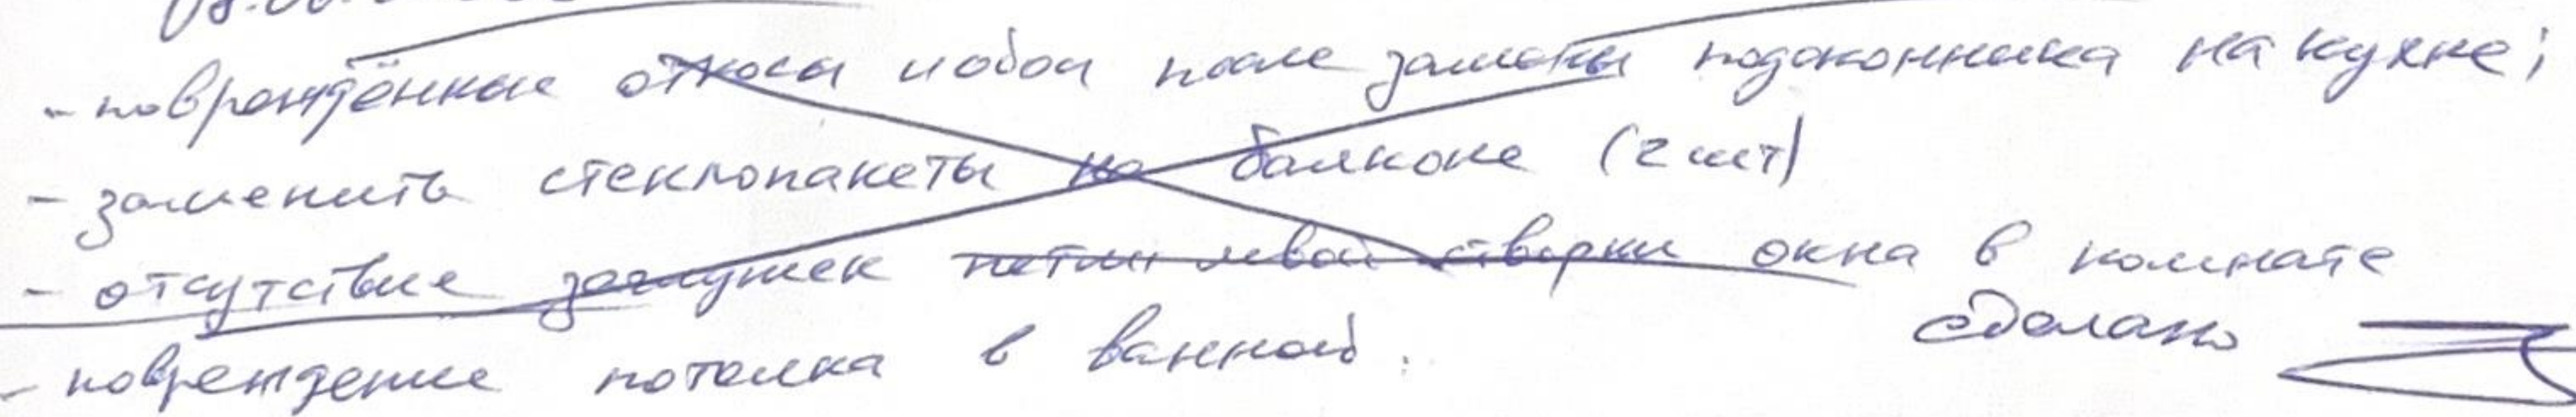 - повреждённые откосы и обои после замены подоконника на кухне;
- заменить стеклопакеты на балконе (2 шт)
- отсутствие заглушек петли левой створки окна в комнате
сделано
- повреждение потолка в ванной.